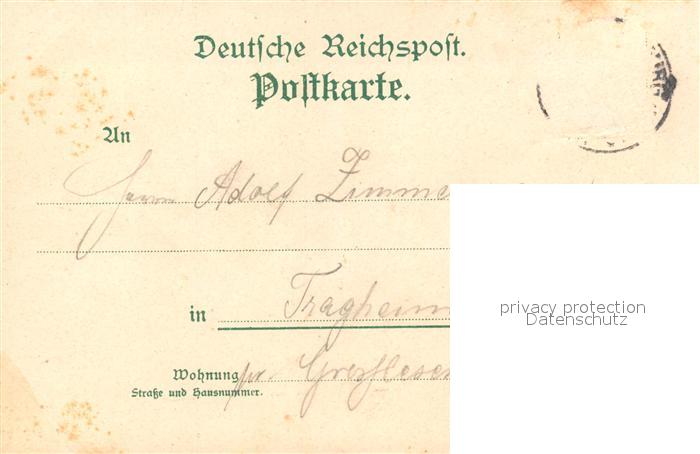 Deutsche Reichspost.
Postkarte.
An
Herrn Adolf Zimme
in Tragheim
privacy protection
Datenschutz
Wohnung pr.
Straße und Hausnummer.